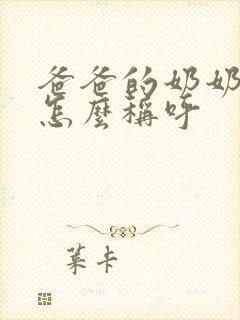 爸爸的奶奶
怎麼稱呼
葉卡